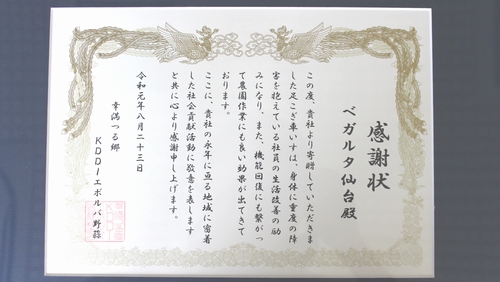 感謝状
ベガルタ仙台殿
この度、貴社より寄贈していただきま
した足こぎ車いすは、身体に重度の障
害を抱えている社員の生活改善の励
みになり、また、機能回復にも繋がっ
て農園作業にも良い効果が出てきて
おります。
ここに、貴社の永年に亘る地域に密着
した社会貢献活動に敬意を表します
と共に心より感謝申し上げます。
令和元年八月二十三日
幸満つる郷
KDDIエボルバ野蒜